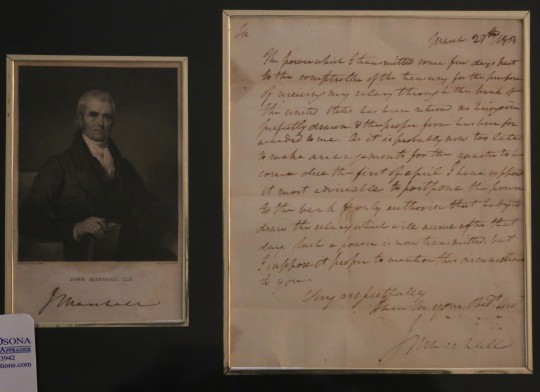 JOHN MARSHALL LLD
J Marshall
OSONA
APPRAISER
3942
tions.com
Sir
March 29th
The power which I transmitted some few days past
to the comptroller of the treasury for the purpose
of receiving my salary through the bank of
the united states has been returned as being im
perfectly drawn & the proper form has been for
warded to me. As it is probably now too late
to make arrangements for the quarter to be
come due the first of april I have supposed
it most adviseable to postpone the power
to the bank & only authorize that body to
draw the salary which will accrue after that
day. Such a power is now transmitted, but
I suppose it proper to mention this
to you.
Very respectfully
I am Sir your Obedt Servt
J Marshall